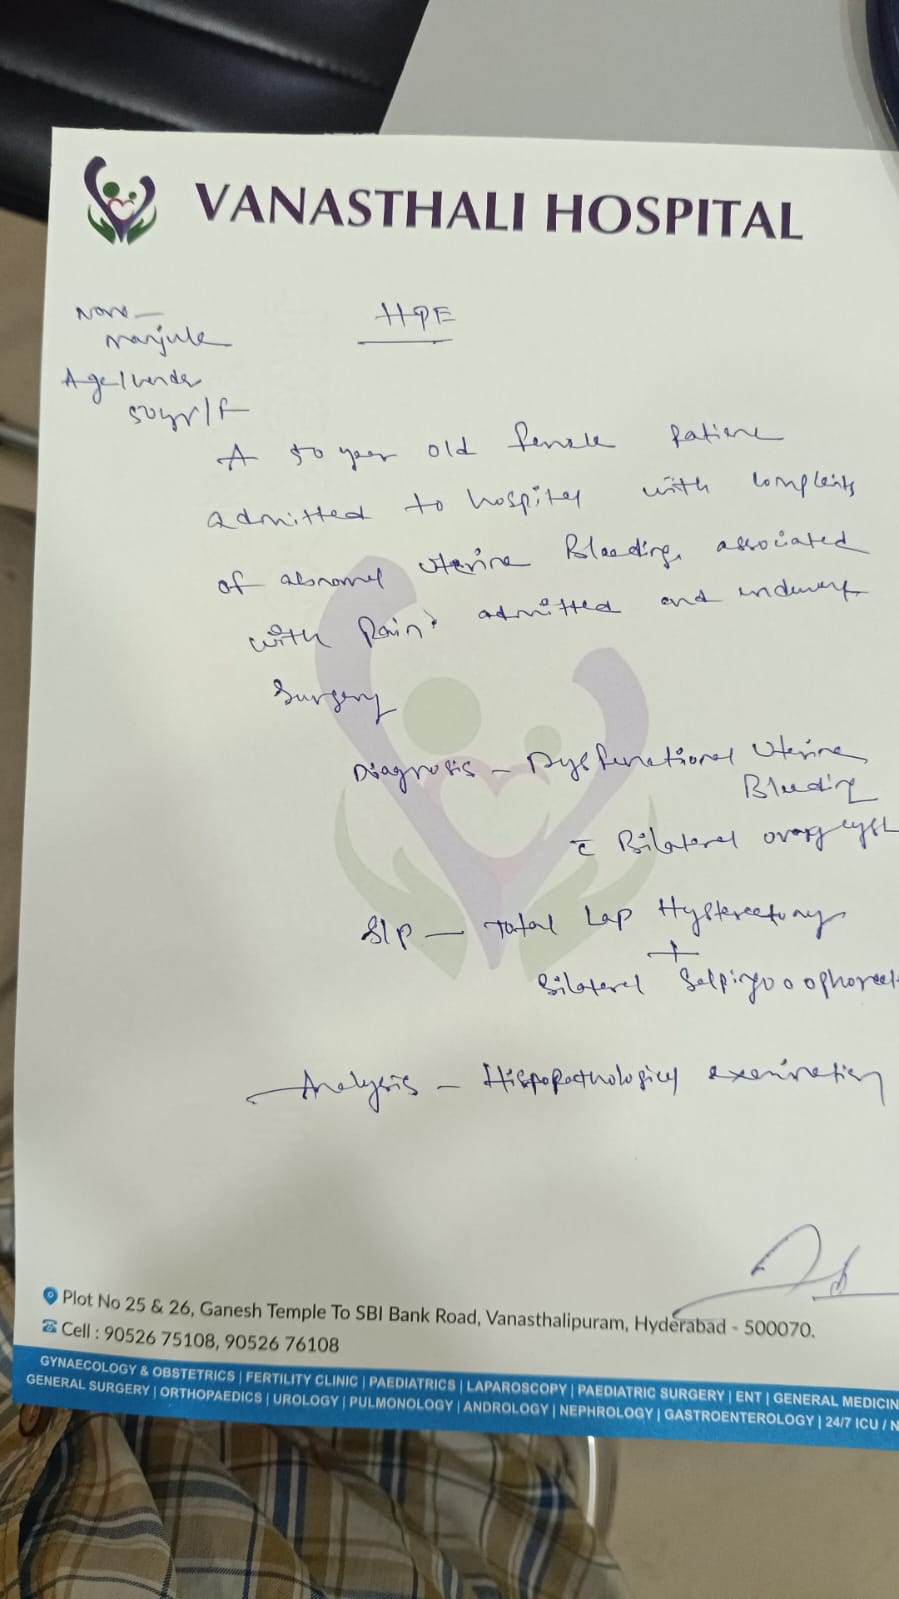 VANASTHALI HOSPITAL
Name—
HPE
Manjula
Age/Gender
50yr/F
A 50 year old female patient
admitted to hospital with complaints
of abnormal uterine Bleeding, associated
with Pain admitted and underwent
surgery
Diagnosis - Dysfunctional Uterine
Bleeding
c̄ Bilateral ovary cyst
S/P — Total Lap Hysterectomy
+
Bilateral Salpingo oophorect
Analysis - Hispopathological examination
Plot No 25 & 26, Ganesh Temple To SBI Bank Road, Vanasthalipuram, Hyderabad - 500070.
Cell : 90526 75108, 90526 76108
GYNAECOLOGY & OBSTETRICS | FERTILITY CLINIC | PAEDIATRICS | LAPAROSCOPY | PAEDIATRIC SURGERY | ENT | GENERAL MEDICIN
GENERAL SURGERY | ORTHOPAEDICS | UROLOGY | PULMONOLOGY | ANDROLOGY | NEPHROLOGY | GASTROENTEROLOGY | 24/7 ICU / N